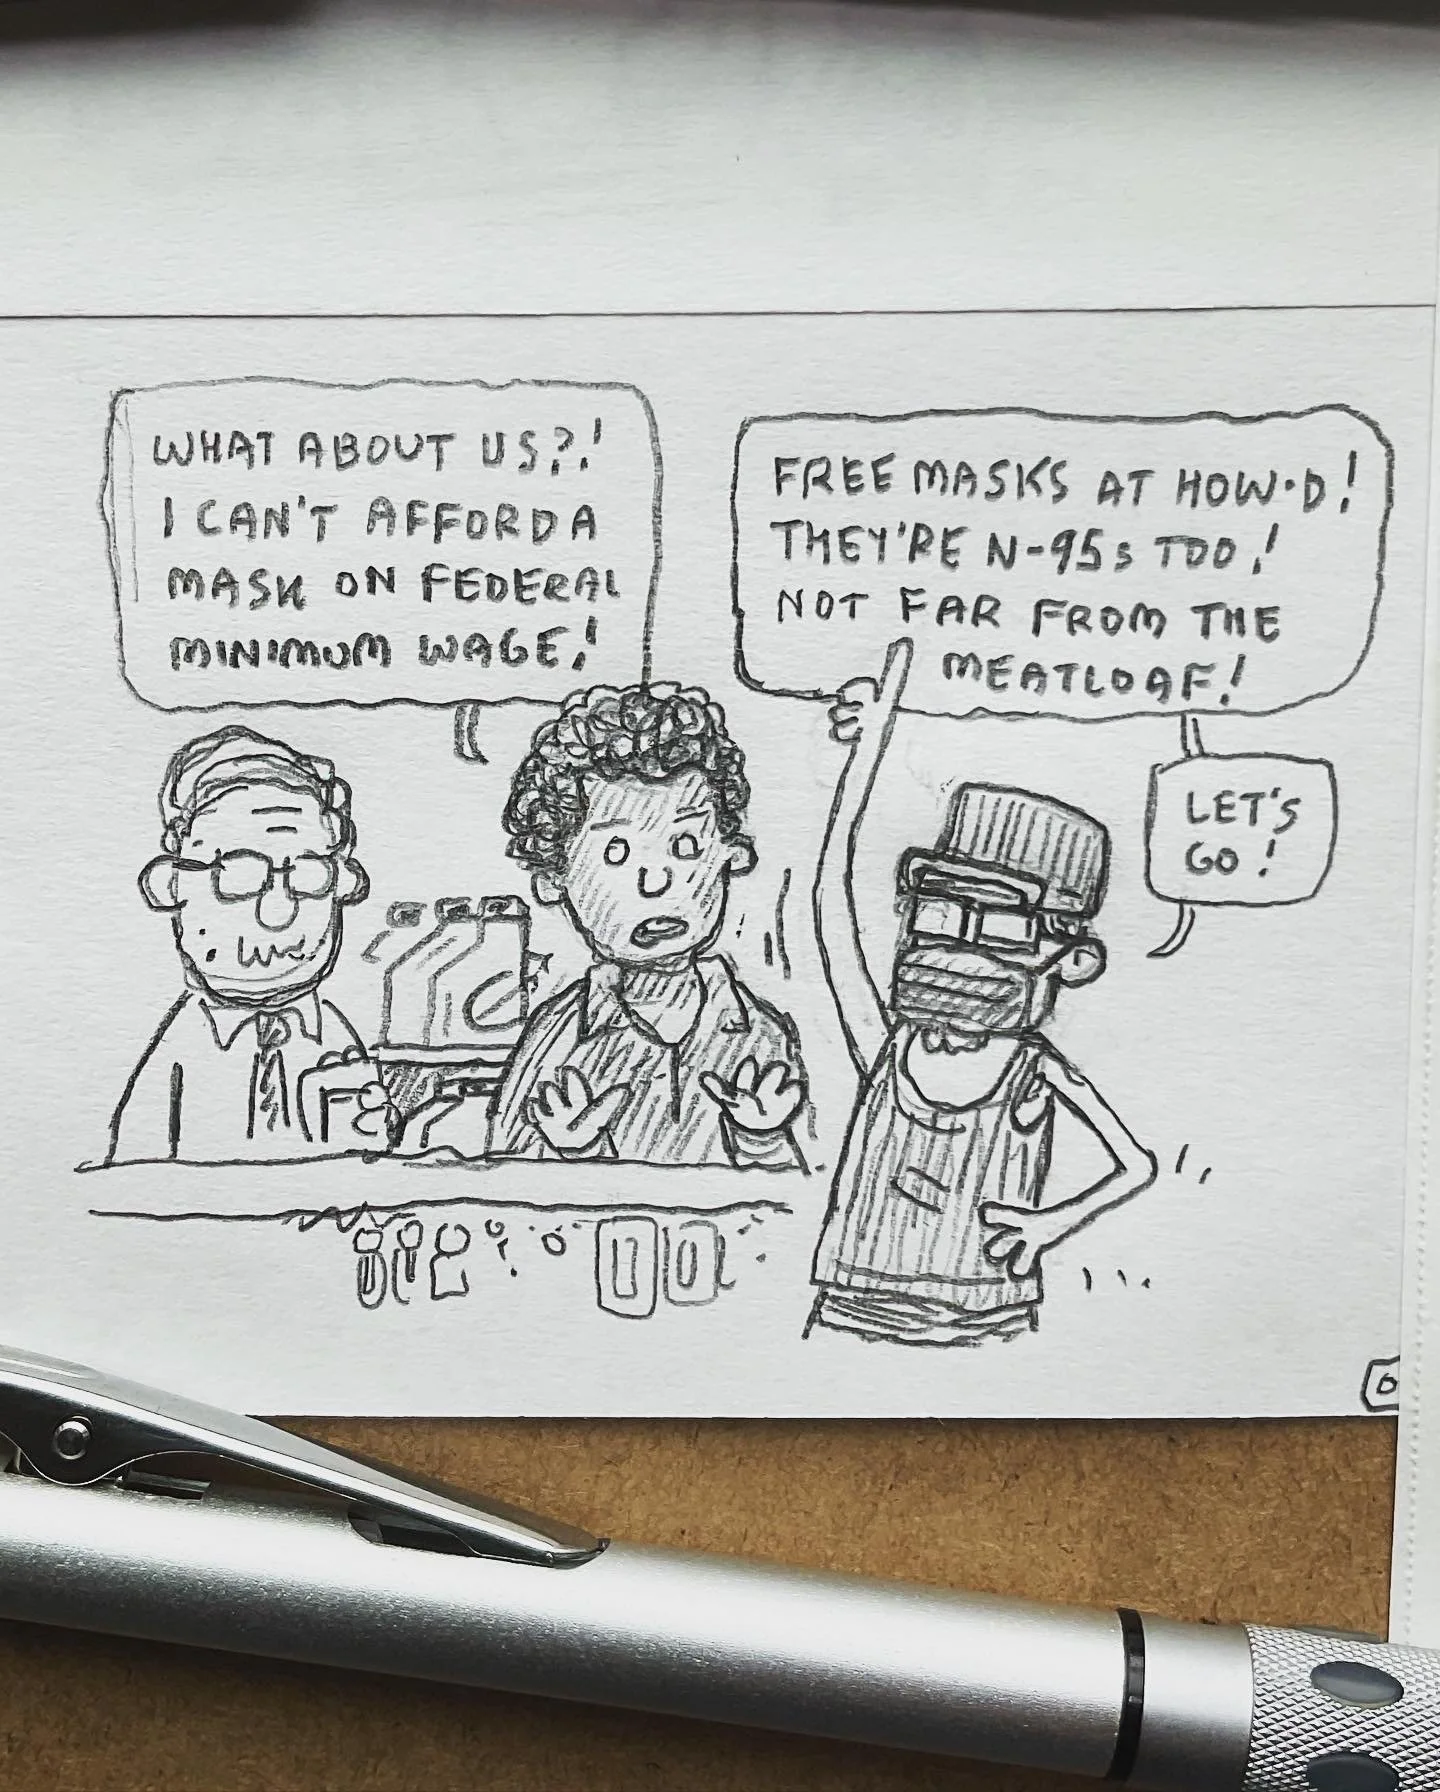 WHAT ABOUT US?!
I CAN'T AFFORD A
MASK ON FEDERAL
MINIMUM WAGE!
FREE MASKS AT HOW·D!
THEY'RE N-95s TOO!
NOT FAR FROM THE
MEATLOAF!
LET'S
GO!